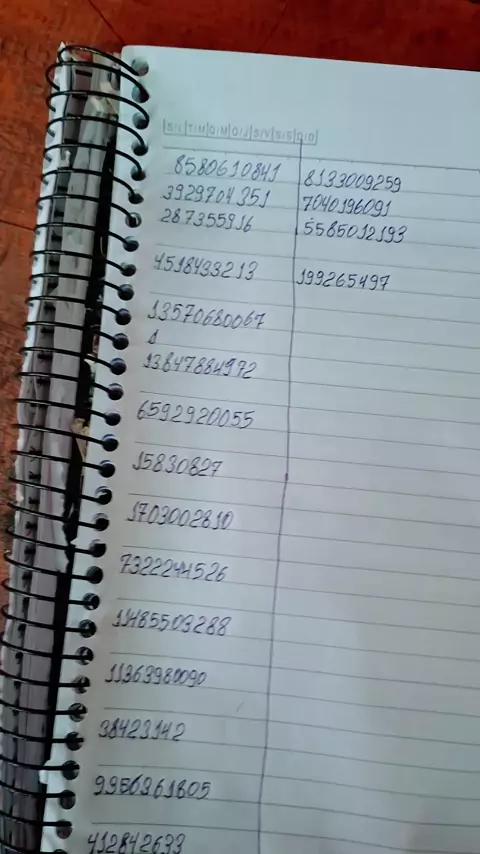 S/L T/M Q/M Q/J S/V S/S D/D
8580610841
3929704351
287355916
4518433213
13570680067
1
13847884972
6592920055
15830827
1703002810
7322244526
11485503288
11363980090
38423142
9956361805
412842633
8133009259
7040196091
5585012193
199265497